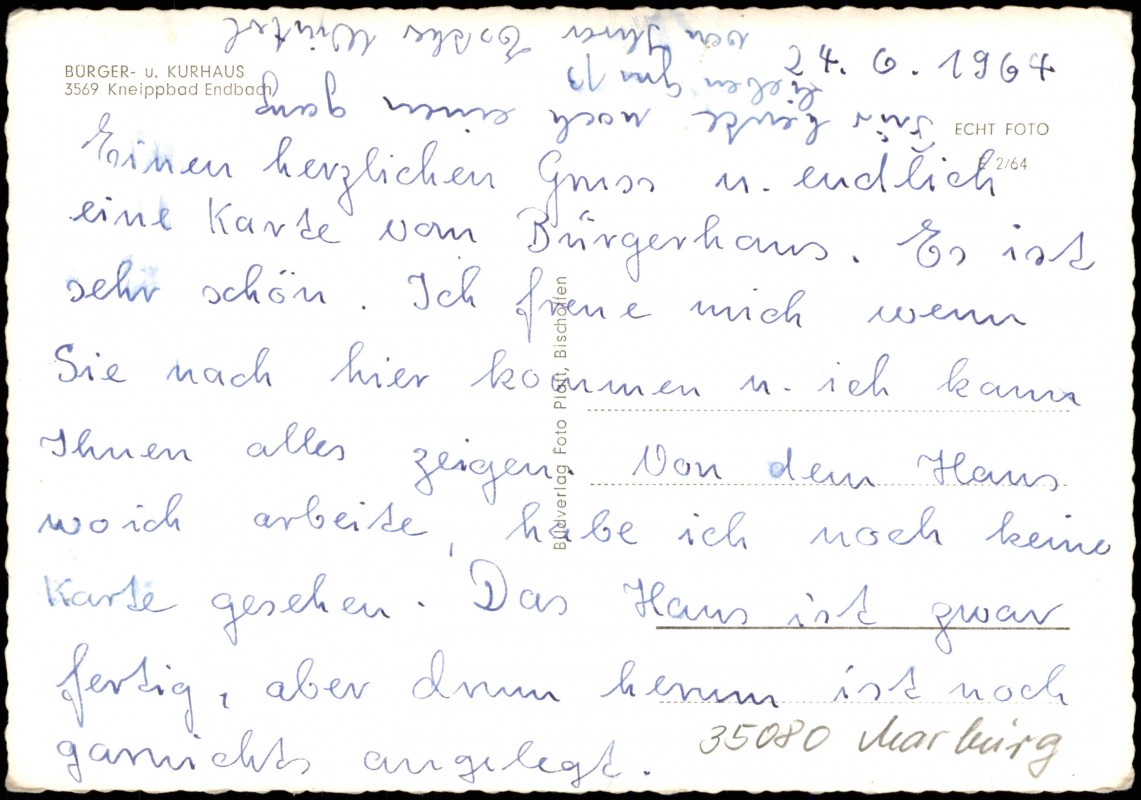 BÜRGER- u. KURHAUS
3569 Kneippbad Endbach
24. 6. 1964
ECHT FOTO
E 2/64
Einen herzlichen Gruss u. endlich
eine Karte vom Bürgerhaus. Es ist
sehr schön. Ich freue mich wenn
Sie nach hier kommen u. ich kann
Ihnen alles zeigen. Von dem Haus
wo ich arbeite, habe ich noch keine
Karte gesehen. Das Haus ist zwar
fertig, aber drum herum ist noch
garnichts angelegt.
Für heute noch einen ganz
lieben Gruß
von Ihrer
Bildverlag Foto Platt, Bischoffen
35080 Marburg